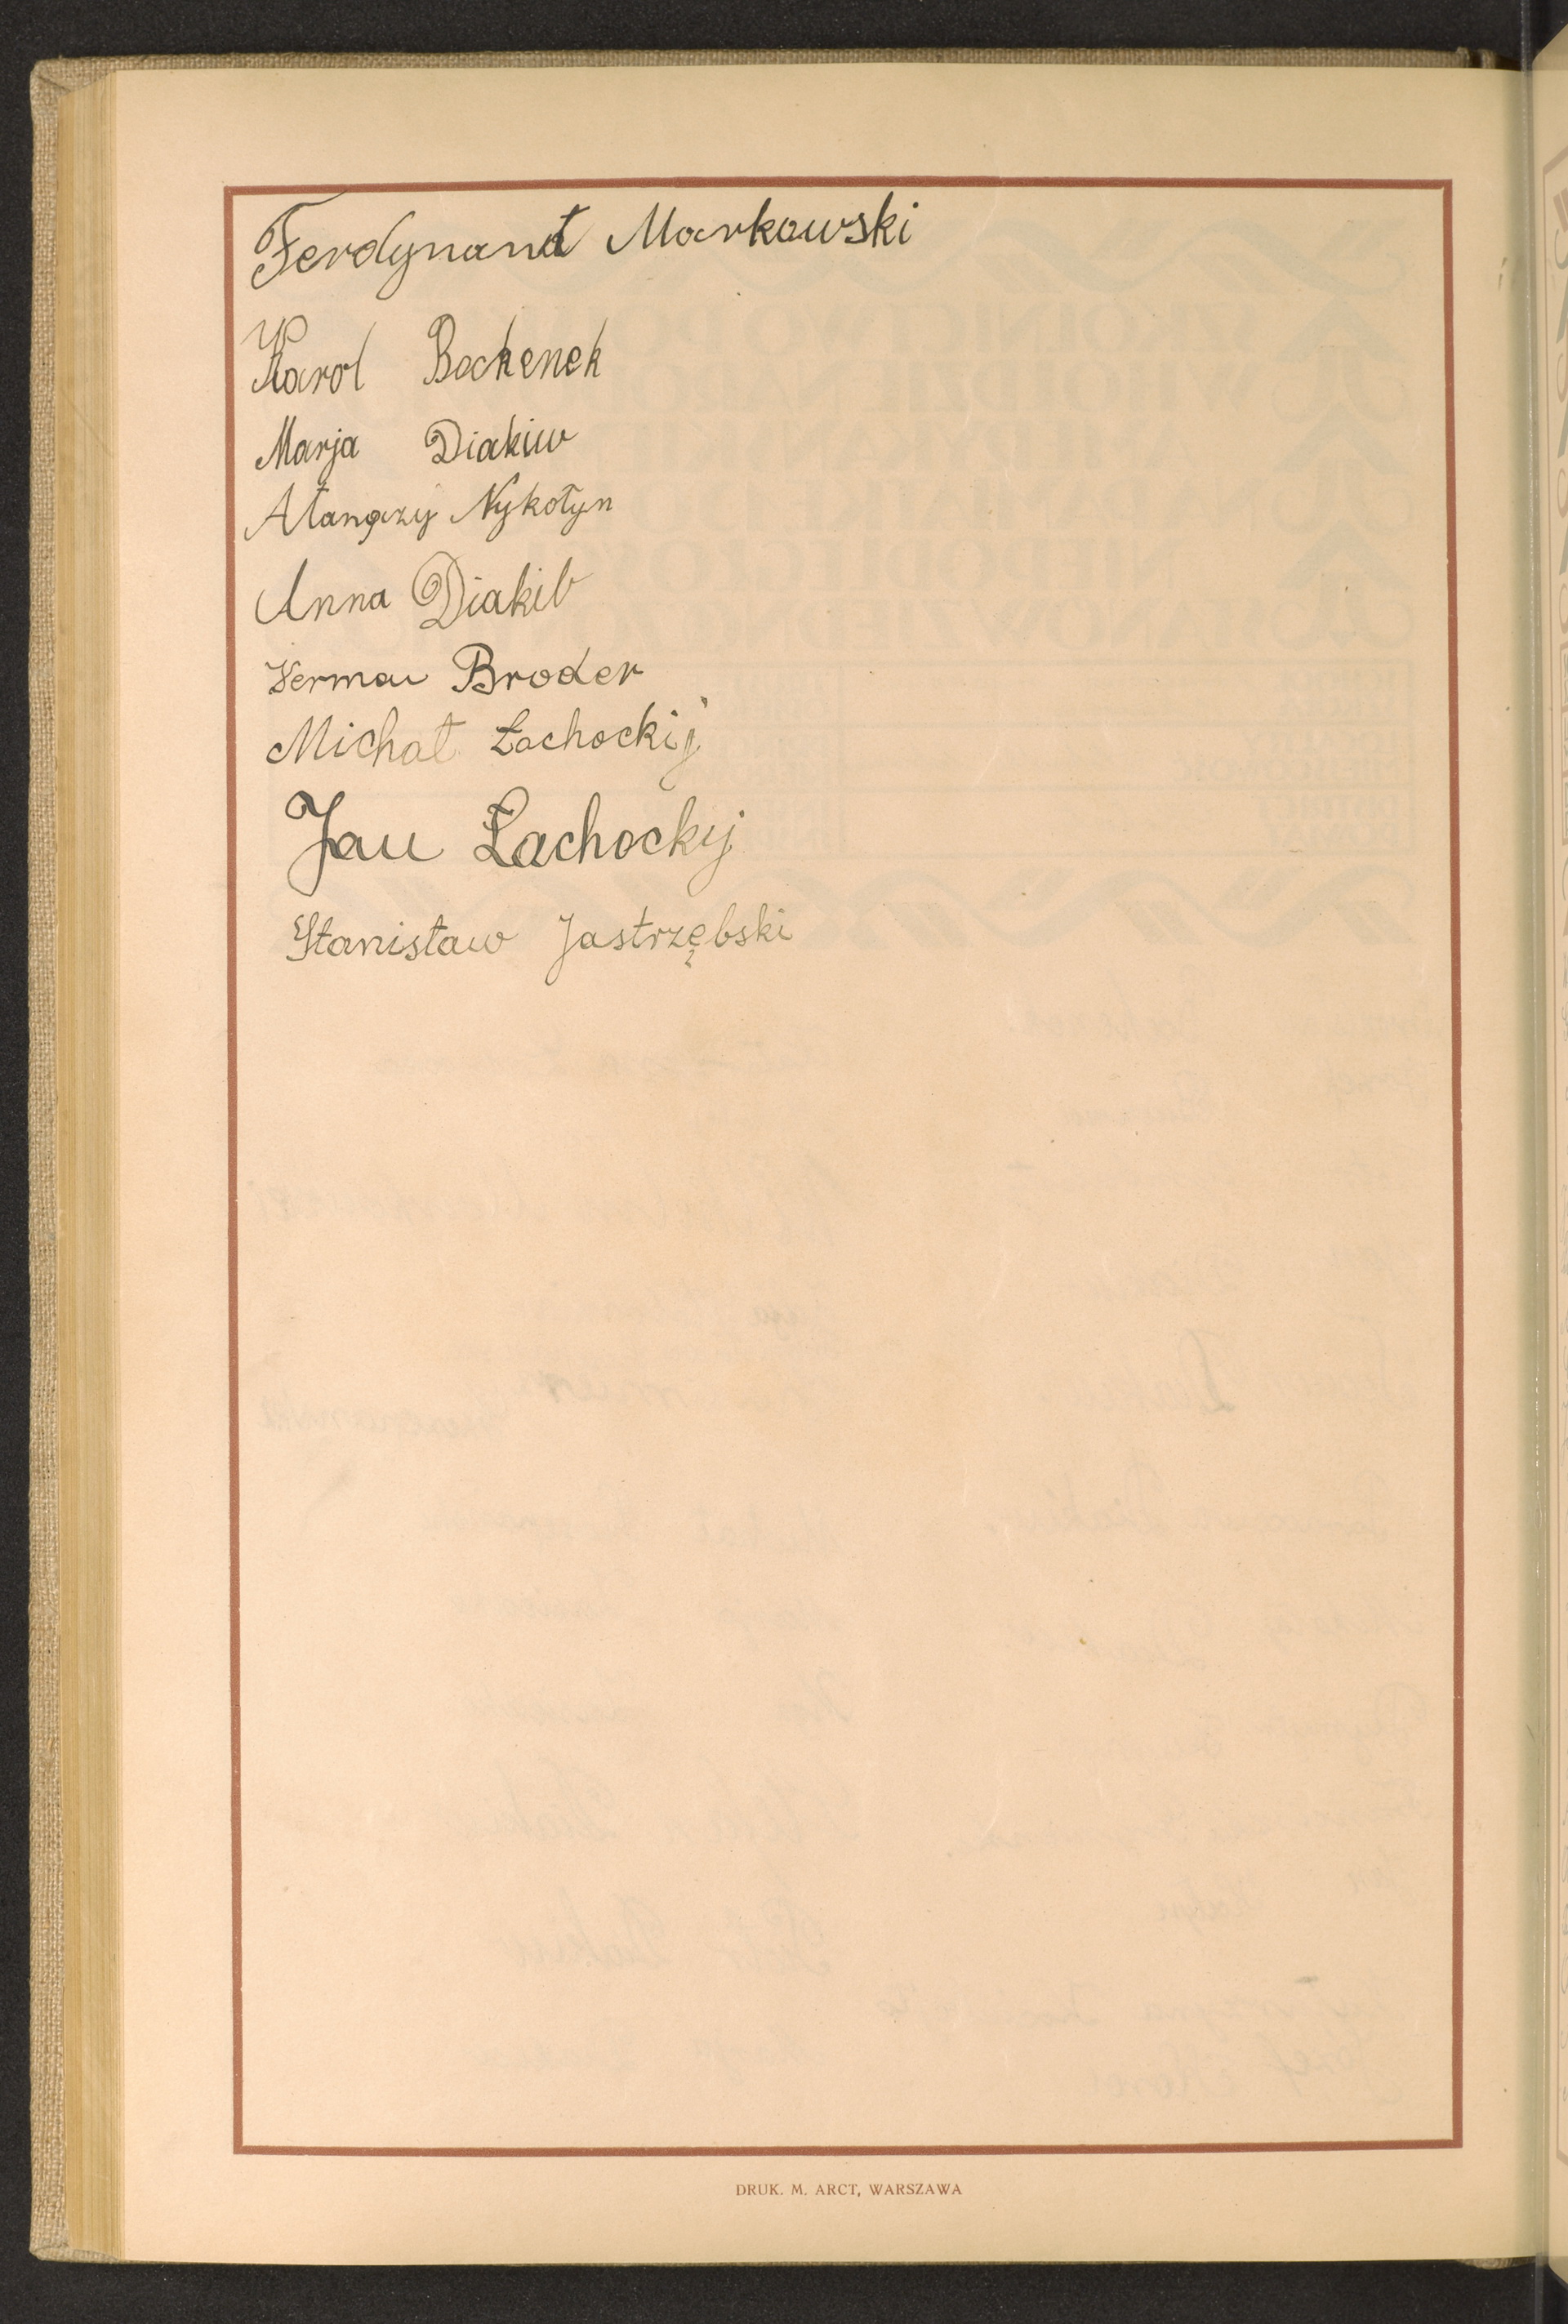 Ferdynand Markowski
Karol Bochenek
Marja Diakiw
Nykołyn
Anna Diakib
Herman Broder
Michał Łachockij
Jan Łachockyj
Stanisław Jastrzębski
DRUK. M. ARCT, WARSZAWA